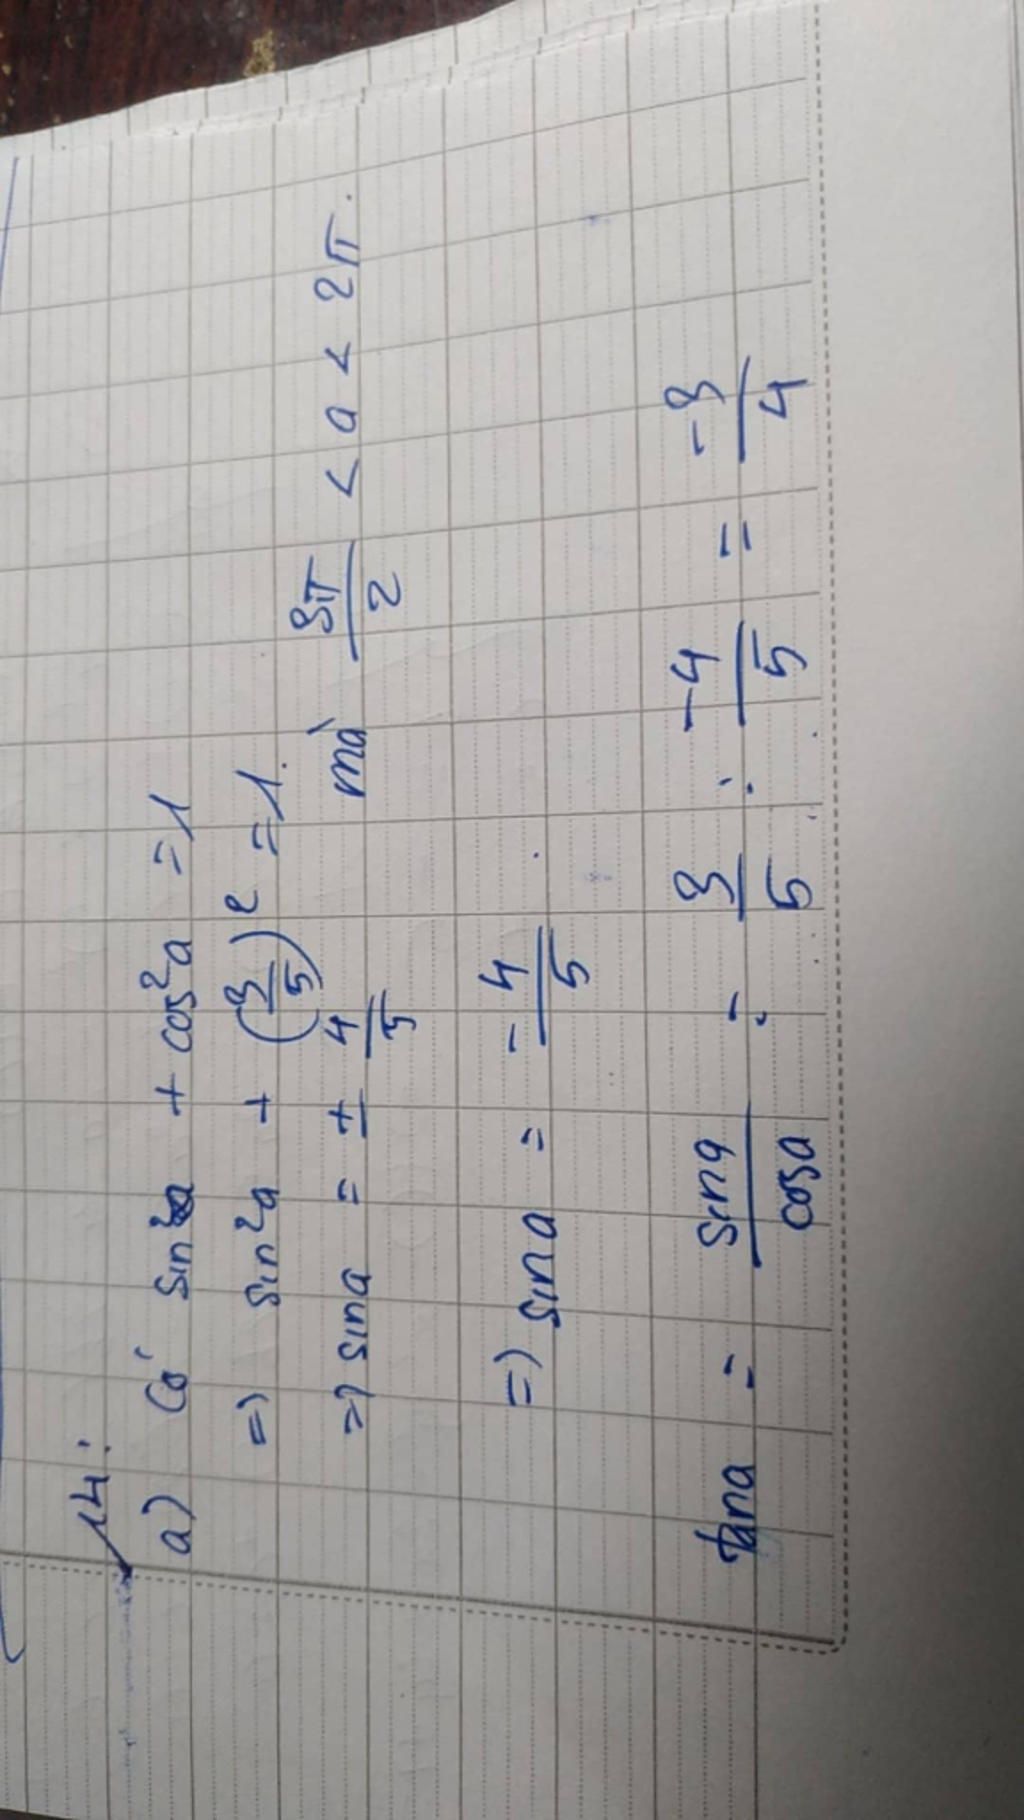 14:
a) Có sin²a + cos²a = 1
=) sin²a + (3/5)² = 1.
=) sina = ± 4/5 mà 3π/2 < a < 2π.
=) sina = -4/5.
tana = sina/cosa = 3/5 : -4/5 = -3/4